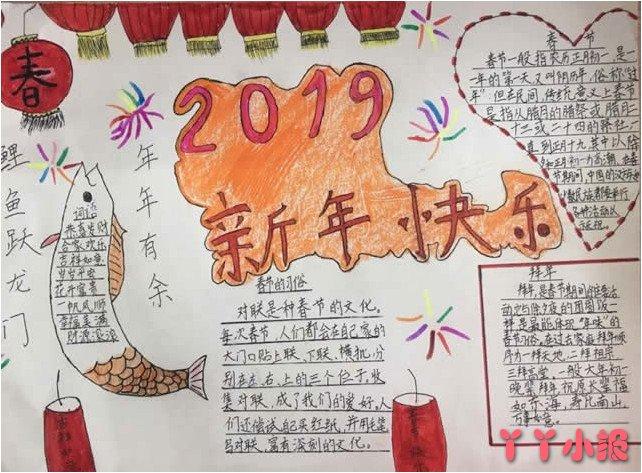 春
2019
新年快乐
鲤鱼跃龙门
年年有余
词语
恭喜发财
合家欢乐
吉祥如意
岁岁平安
花开富贵
一帆风顺
幸福美满
财源滚滚
春节的习俗
对联是种春节的文化。
每次春节,人们都会在自己家的
大门口贴上联、下联、横批,分
别在左、右、上的三个位子,收
集对联,成了我们的爱好。人
们还尝试自己买红纸,并用毛笔
写对联,富有深刻的文化。
春节
春节一般指农历正月初一,是
一年的第一天又叫阴历年,俗称"过
年"但在民间,传统意义上春节
是指从腊月的腊祭或腊月二
十三或二十四的祭灶,一
直到正月十九其中以除
夕和正月初一为高潮。在春
节期间,中国的汉族和
少数民族都要举行
各种活动以
庆祝。
拜年
三拜高堂,一般大年初一
晚辈拜年祝愿长辈福
如东海,寿比南山,
万事如意。
丫丫小报